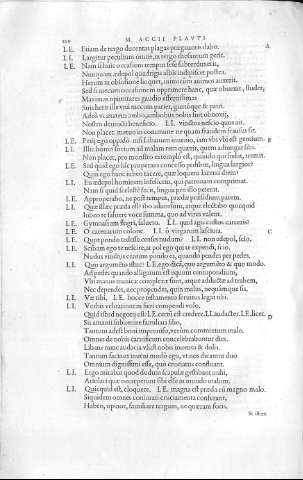 M. ACCII PLAVTI
LE. Etiam de tergo ducentas plagas prægnantis dabo.
LI. Largitur peculium omne, in tergo thesaurum gerit.
LE. Nam si huic occasioni tempus sese subterduxerit,
Nunquam ædepol quadrigis albis indipiscet postea.
Herum in obsidione linquet, inimicum animos auxerit.
Sed si mecum occasionem opprimere hanc, quæ obuenit, studet,
Maximas opimitates gaudio effertissimas
Suis heris ille vna mecum pariet, gnatoque & patri.
Adeo vt ætatem ambo, ambobus nobis sint obnoxii,
Nostro deuincti beneficio. LI. vinctos nescio quos ait.
Non placet. metuo in commune ne quam fraudem frausus sit.
LE. Perii ego oppido nisi Libanum inuenio, iam vbi vbi est gentium
LI. Illic homo socium ad malam rem quærit, quem adiungat sibi.
Non placet. pro monstro extemplo est, quando qui sudat, tremit.
LE. Sed quid ego hic properans concesso pedibus, lingua largior?
Quin ego hanc iubeo tacere, quæ loquens lacerat diem?
LI. Edepol hominem infelicem, qui patronam comprimat.
Nam si quid sceleste fecit, lingua pro illo peierat.
LE. Approperabo, ne post tempus, prædæ præsidium parem.
LI. Quæ illæc præda est? ibo aduersum, atque electabo quicquid
Iubeo te saluere voce summa, quo ad vires valent.
LE. Gymnasium flagri, salueto. LI. quid agis custos carceris?
LE. O catenarum colone. LI. o virgarum lasciuia.
LE. Quot pondo te esse censes nudum? LI. non edepol, scio.
LE. Scibam ego te nescire, at pol ego qui te expendi, scio.
Nudus vinctus centum pondo es, quando pendes per pedes.
LI. Quo argumento istuc? LE. ego dicam, quo argumento & quo modo.
Ad pedes quando alligatum est æquum centupondium,
Vbi manus manicæ complexæ sunt, atque adductæ ad trabem,
Nec dependes, nec propendes, quin malus, nequamque sis.
LI. Væ tibi. LE. hocce testamento seruitus legat tibi.
LI. Verbis velitationem fieri compendi volo.
Quid istud negotii est? LE. certum est credere. LI. audacter. LE. licet.
Sis amanti subuenire familiari filio,
Tantum adest boni improuiso, verum commixtum malo.
Omnes de nobis carnificum concelebrabuntur dies.
Libane nunc audacia vsu est nobis inuenta & dolis.
Tantum facinus inueni modo ego, vt nos dicamur duo
Omnium dignissimi esse, quo cruciatus confluant.
LI. Ergo mirabar quod dudum scapulæ gestibant mihi,
Ariolari quæ occœperunt sibi esse in mundo malum.
LI. Quicquid est, eloquere. LE. magna est præda cum magno malo.
Siquidem omnes coniurati cruciamenta conferant,
Habeo, opinor, familiare tergum, ne quæram foris.
Si istam